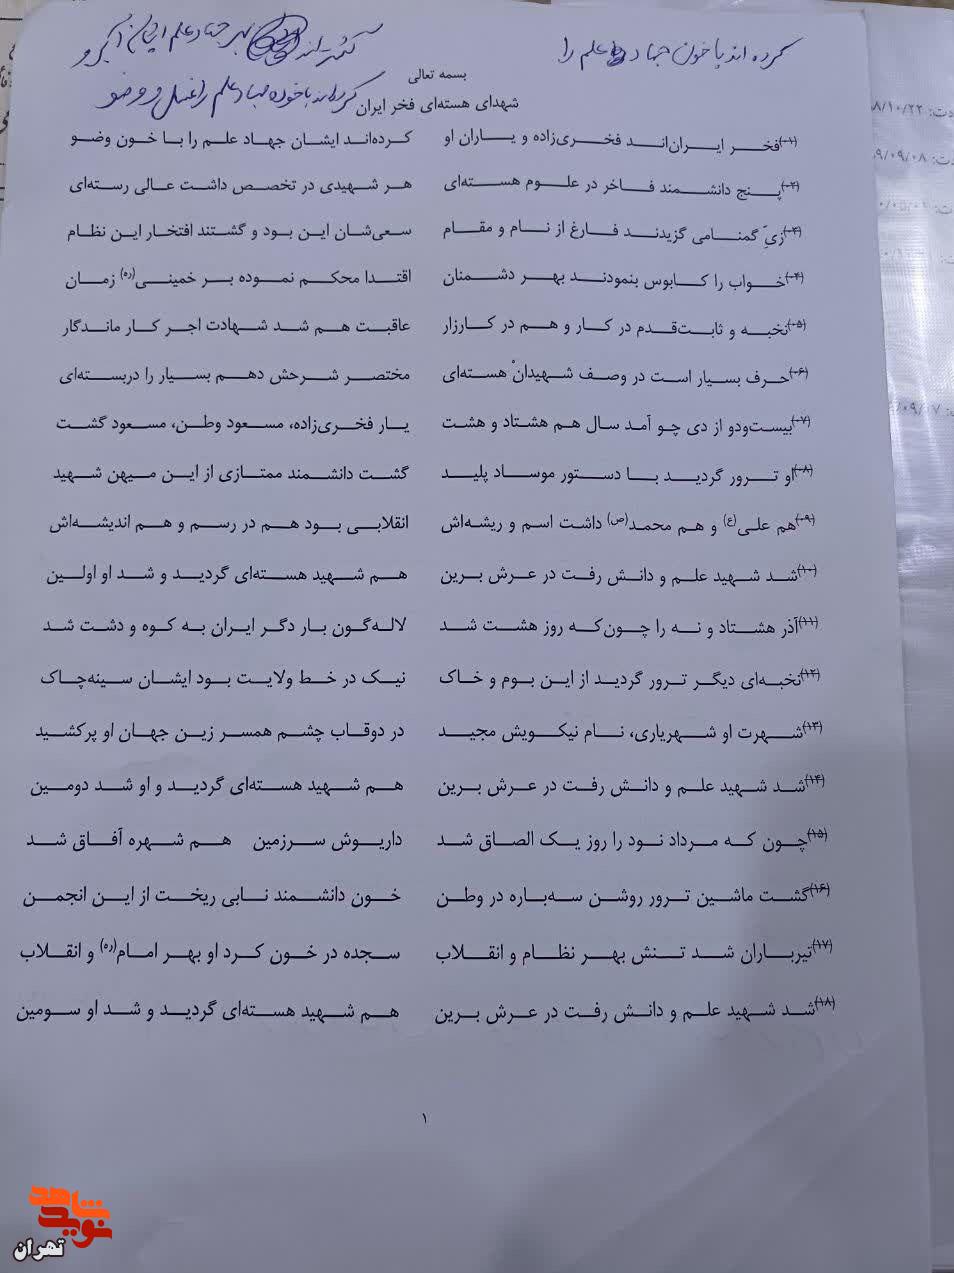 کرده اند با خون جهاد علم را
بسمه تعالی
شهدای هسته‌ای فخر ایران
(۱-)فخر ایران‌اند فخری‌زاده و یاران او کرده‌اند ایشان جهاد علم را با خون وضو
(۲-)پنج دانشمند فاخر در علوم هسته‌ای هر شهیدی در تخصص داشت عالی رسته‌ای
(۳-)زیِّ گمنامی گزیدند فارغ از نام و مقام سعی‌شان این بود و گشتند افتخار این نظام
(۴-)خواب را کابوس بنمودند بهر دشمنان اقتدا محکم نموده بر خمینی(ره) زمان
(۵-)نخبه و ثابت‌قدم در کار و هم در کارزار عاقبت هم شد شهادت اجر کار ماندگار
(۶-)حرف بسیار است در وصف شهیدانْ هسته‌ای مختصر شرحش دهم بسیار را دربسته‌ای
(۷-)بیست‌ودو از دی چو آمد سال هم هشتاد و هشت یار فخری‌زاده، مسعود وطن، مسعود گشت
(۸-)او ترور گردید با دستور موساد پلید گشت دانشمند ممتازی از این میهن شهید
(۹-)هم علی(ع) و هم محمد(ص) داشت اسم و ریشه‌اش انقلابی بود هم در رسم و هم اندیشه‌اش
(۱۰)شد شهید علم و دانش رفت در عرش برین هم شهید هسته‌ای گردید و شد او اولین
(۱۱)آذر هشتاد و نه را چون‌که روز هشت شد لاله‌گون بار دگر ایران به کوه و دشت شد
(۱۲)نخبه‌ای دیگر ترور گردید از این بوم و خاک نیک در خط ولایت بود ایشان سینه‌چاک
(۱۳)شهرت او شهریاری، نام نیکویش مجید در دوقاب چشم همسر زین جهان او پرکشید
(۱۴)شد شهید علم و دانش رفت در عرش برین هم شهید هسته‌ای گردید و او شد دومین
(۱۵)چون که مرداد نود را روز یک الصاق شد داریوش سرزمین هم شهره آفاق شد
(۱۶)گشت ماشین ترور روشن سه‌باره در وطن خون دانشمند نابی ریخت از این انجمن
(۱۷)تیرباران شد تنش بهر نظام و انقلاب سجده در خون کرد او بهر امام(ره) و انقلاب
(۱۸)شد شهید علم و دانش رفت در عرش برین هم شهید هسته‌ای گردید و شد او سومین
۱
نوید شاهد
تهران